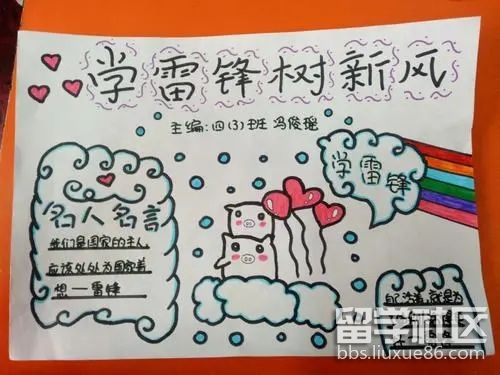 学雷锋树新风
主编:四(3)班 冯俊瑶
学雷锋
名人名言
我们是国家的主人
应该处处为国家着
想—雷锋
留学社区
bbs.liuxue86.com